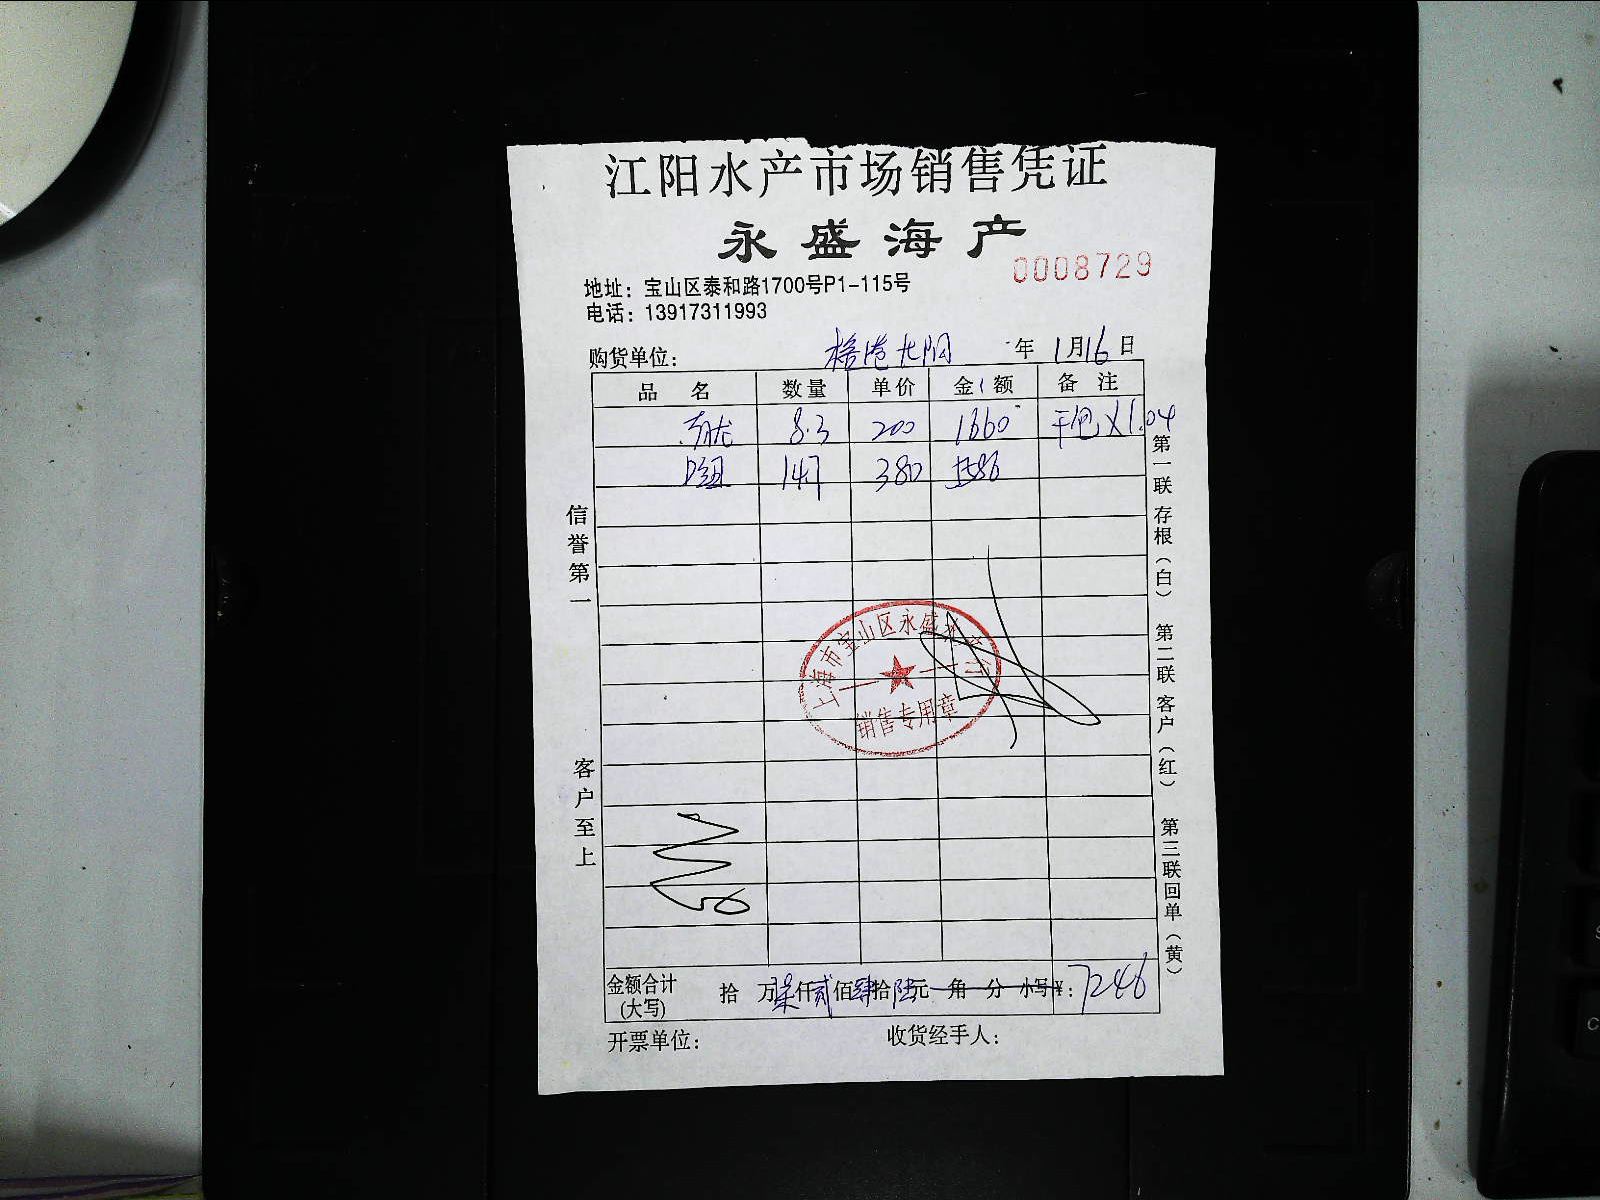 江阳水产市场销售凭证
永盛海产
0008729
地址：宝山区泰和路1700号P1-115号
电话：13917311993
购货单位： 年 1月16日
品 名 数量 单价 金额 备 注
8.3 200 1660 干包X1.04
14.7 380 5586
信誉第一
客户至上
第一联 存根（白） 第二联 客户（红） 第三联回单（黄）
上海市宝山区永盛水产行
销售专用章
金额合计 拾 万柒仟贰佰肆拾陆元 角 分 小写¥：7246
(大写)
开票单位： 收货经手人：